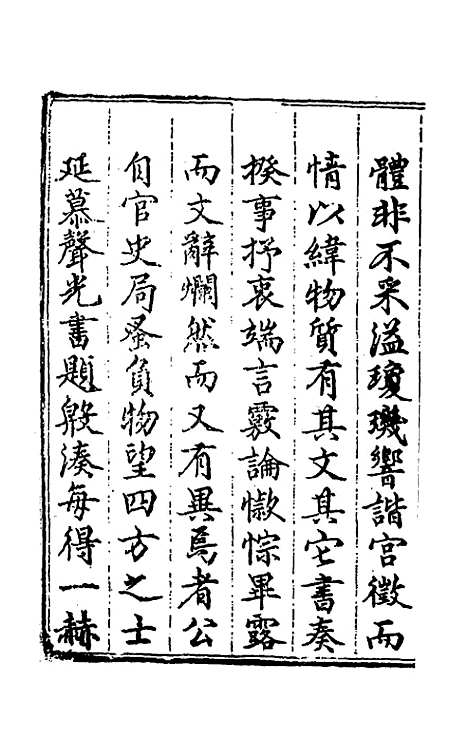 體非不采溢瓊璣響諧宮徵而
情以緯物質有其文其它書奏
揆事抒衷端言覈論懒悰畢露
而文辭爛然而又有異焉者公
自官史局蚤負物望四方之士
延慕聲光書題殷湊每得一赫